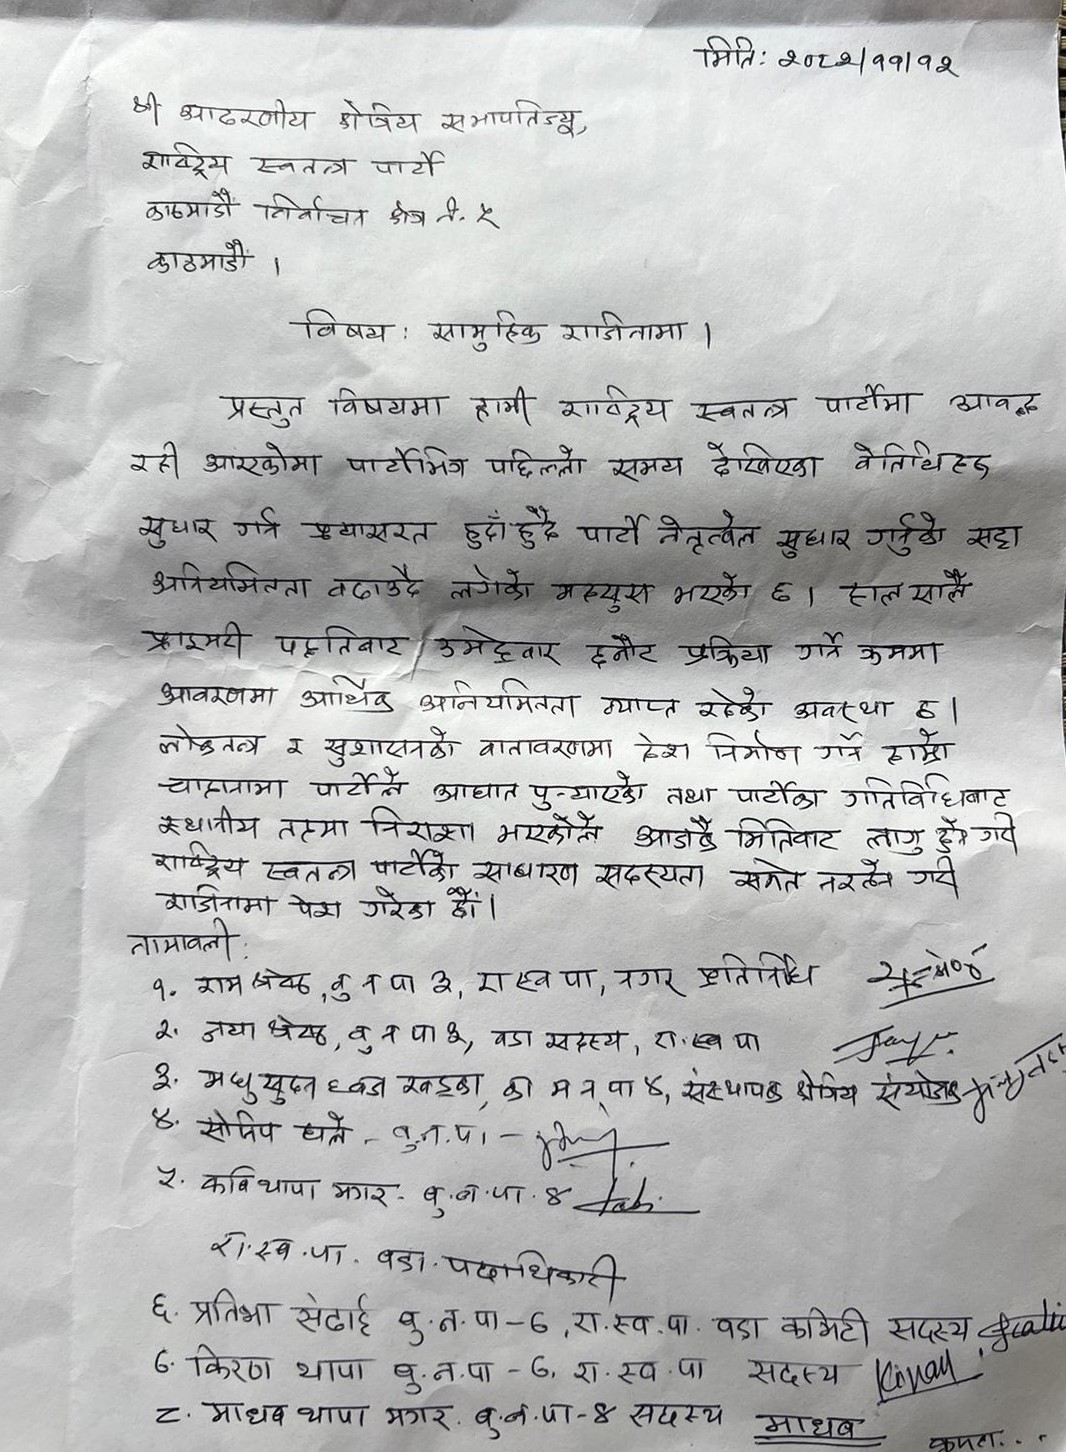 मिति: २०८२/११/१२
श्री आदरणीय क्षेत्रिय सभापतिज्यू,
राष्ट्रिय स्वतन्त्र पार्टी
काठमाडौं निर्वाचन क्षेत्र नं. ५
काठमाडौं ।
विषय: सामुहिक राजिनामा ।
प्रस्तुत विषयमा हामी राष्ट्रिय स्वतन्त्र पार्टीमा आवद्ध
रही आएकोमा पार्टीभित्र पछिल्लो समय देखिएका वेतिथिहरु
सुधार गर्न प्रयासरत हुदाँहुदै पार्टी नेतृत्वले सुधार गर्नुको सट्टा
अनियमितता वढाउदै लगेको महसुस भएको छ । हाल सालै
प्राइमरी पद्दतिबाट उमेद्दवार छनौट प्रक्रिया गर्ने क्रममा
आवरणमा आर्थिक अनियमितता व्याप्त रहेको अवस्था छ ।
लोकतन्त्र र सुशासनको वातावरणमा देश निर्माण गर्ने हाम्रो
चाहानामा पार्टीले आघात पुऱ्याएको तथा पार्टीका गतिविधिबाट
स्थानीय तहमा निराशा भएकोले आजकै मितिबाट लागु हुने गरी
राष्ट्रिय स्वतन्त्र पार्टीको साधारण सदस्यता समेत नरहने गरी
राजिनामा पेश गरेका छौं ।
नामावली:
१. राम श्रेष्ठ, बु न पा ३, रा स्व पा, नगर प्रतिनिधि
२. जया श्रेष्ठ, बु न पा ३, वडा सदस्य, रा. स्व पा
३. मधुसुदन ध्वज खड्का, का म न पा ४, संस्थापक क्षेत्रिय संयोजक
४. सोजिप घले - बु.न.पा. -
५. कवि थापा मगर - बु.न.पा. ४
रा.स्व.पा. वडा पदाधिकारी
६. प्रतिभा सेढाई बु.न.पा-७, रा.स्व.पा. वडा कमिटी सदस्य
७. किरण थापा बु.न.पा-७, रा.स्व.पा सदस्य Kiran
८. माधब थापा मगर. बु.न.पा-४ सदस्य माधब
क्रमश...